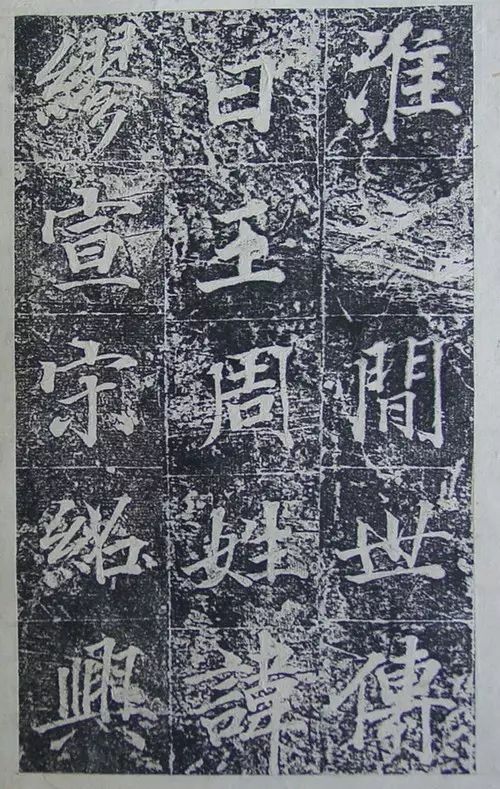 淮之間世傳
曰王周姓諱
繆宣宗紹興